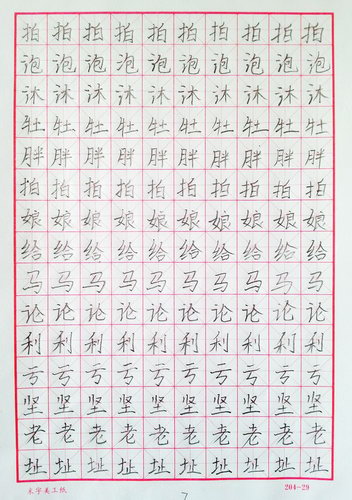 拍拍拍拍拍拍拍拍拍拍
泡泡泡泡泡泡泡泡泡泡
沐沐沐沐沐沐沐沐沐沐
牡牡牡牡牡牡牡牡牡牡
胖胖胖胖胖胖胖胖胖胖
拍拍拍拍拍拍拍拍拍拍
娘娘娘娘娘娘娘娘娘娘
给给给给给给给给给给
马马马马马马马马马马
论论论论论论论论论论
利利利利利利利利利利
亏亏亏亏亏亏亏亏亏亏
坚坚坚坚坚坚坚坚坚坚
老老老老老老老老老老
址址址址址址址址址址
米字美工纸 204-29
7